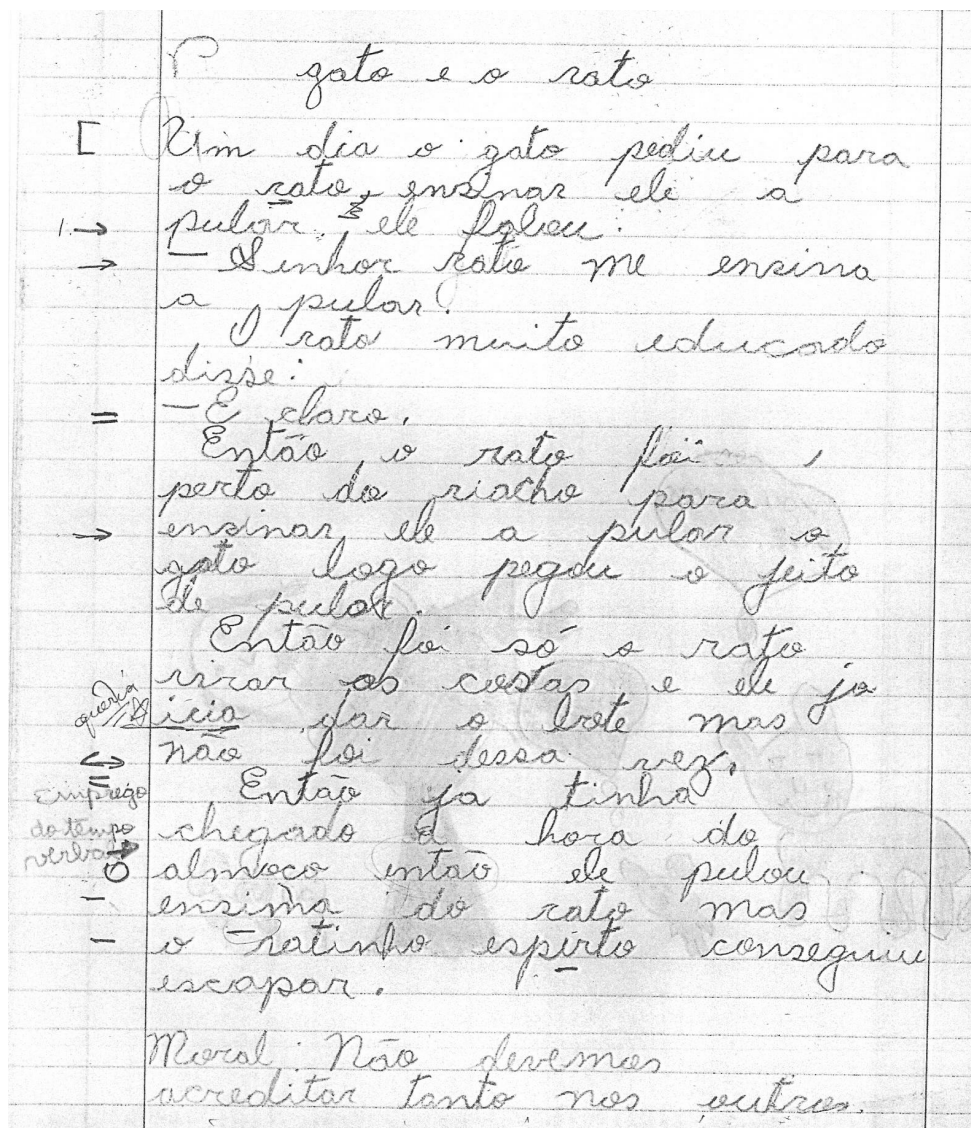 gato e o rato
Um dia o gato pediu para
o rato, ensinar ele a
pular, ele falou:
— Senhor rato me ensina
a pular.
O rato muito educado
disse:
— E claro.
Então o rato foi
perto do riacho para
ensinar ele a pular o
gato logo pegou o jeito
de pular.
Então foi só o rato
virar as costas e ele ja
queria
icia dar o bote mas
não foi dessa vez.
Emprego
do tempo
verbal
Então ja tinha
chegado a hora do
almoco então ele pulou
ensima do rato mas
o ratinho espirto conseguiu
escapar.
Moral: Não devemos
acreditar tanto nos outros.